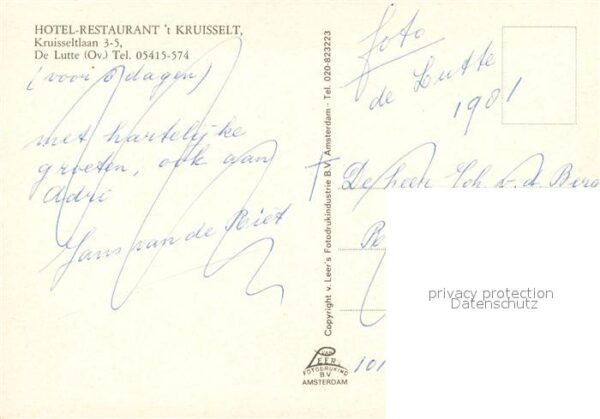 HOTEL-RESTAURANT 't KRUISSELT,
Kruisseltlaan 3-5,
De Lutte (Ov.) Tel. 05415-574
(voor 5 dagen)
met hartelijke
groeten, ook aan
Adri
Hans van de Riet
foto
de Lutte
1981
De heer Joh. v. d. Berg
Pe
101
Copyright v. Leer's Fotodrukindustrie B.V. Amsterdam - Tel. 020-823223
VAN
LEER
FOTODRUKIND
B.V
AMSTERDAM
privacy protection
www.ansichtskarten-center.de